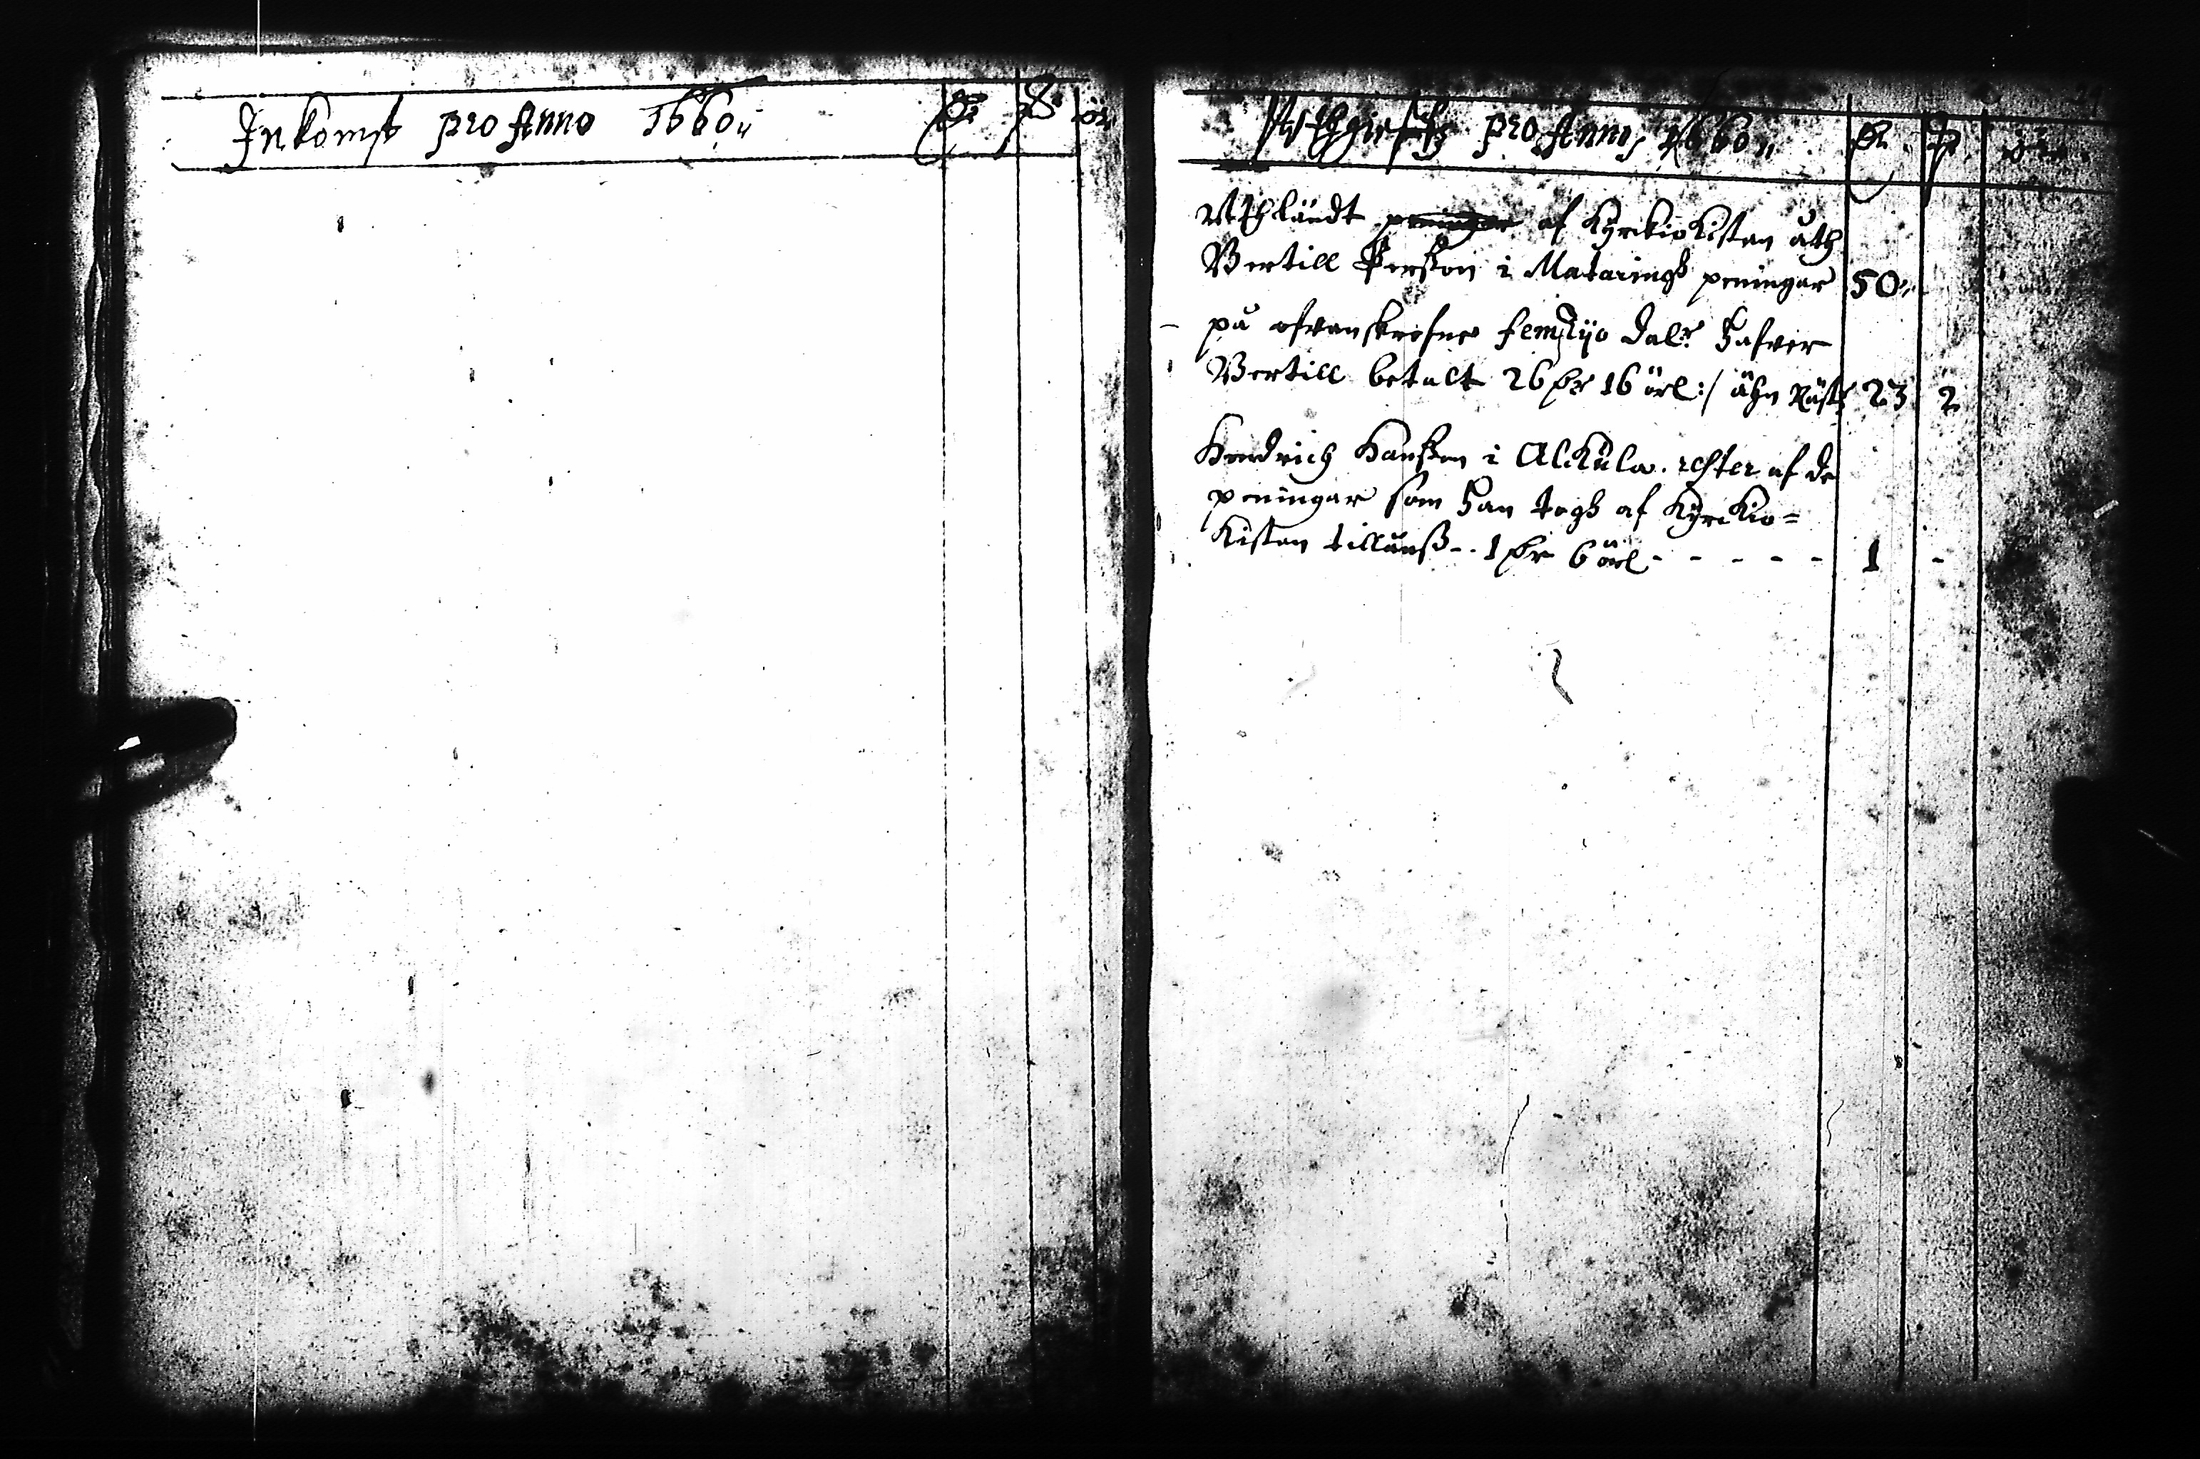 Inkomst pro Anno 1660
Uthgiefft pro Anno 1660
Uthländt peningar af Kyrkio Kisten åth
Bertill Persson i Mataringh peningar 50
på ofvanskrefne femtijo dal:r hafver
Bertill betalt 26 dr 16 örl:/ ähn Rästr 23 2
Hendrich Hansson i Alkula. rester af de
peningar som han togh af Kyrkio=
Kisten tillånss -- 1 dr 6 örl - - - - - 1 -